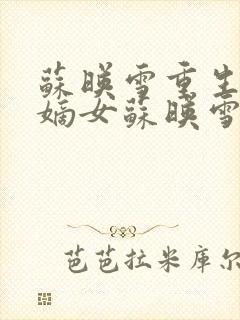 蘇暎雪重生
嫡女蘇暎雪
芭芭拉米库尔